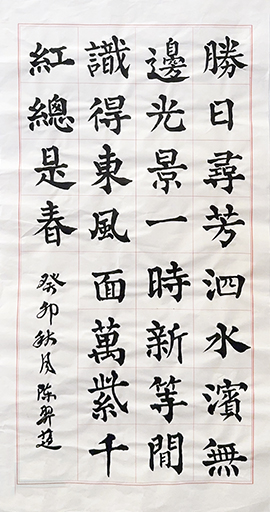 勝日尋芳泗水濱無
邊光景一時新等閒
識得東風面萬紫千
紅總是春
癸卯秋月陈羿莛